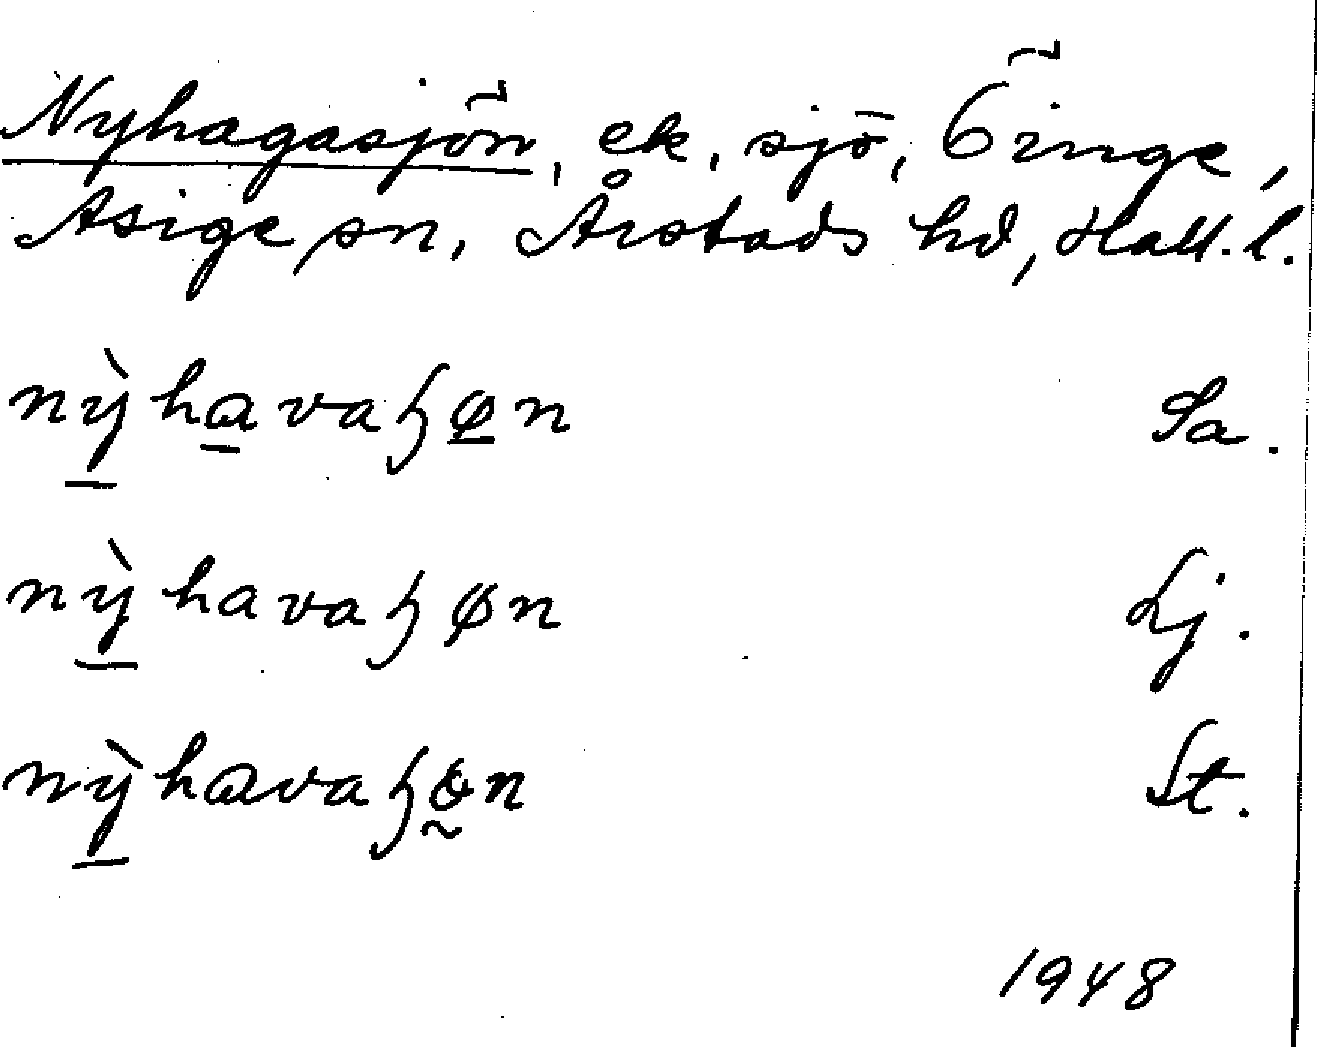 Nyhagasjön, ek. sjö, Öinge,
Asige sn, Årstads hd, Hall. l.
nỳhavaɧøn Sa.
nỳhavaɧøn Lj.
nỳhavaɧɵn St.
1948